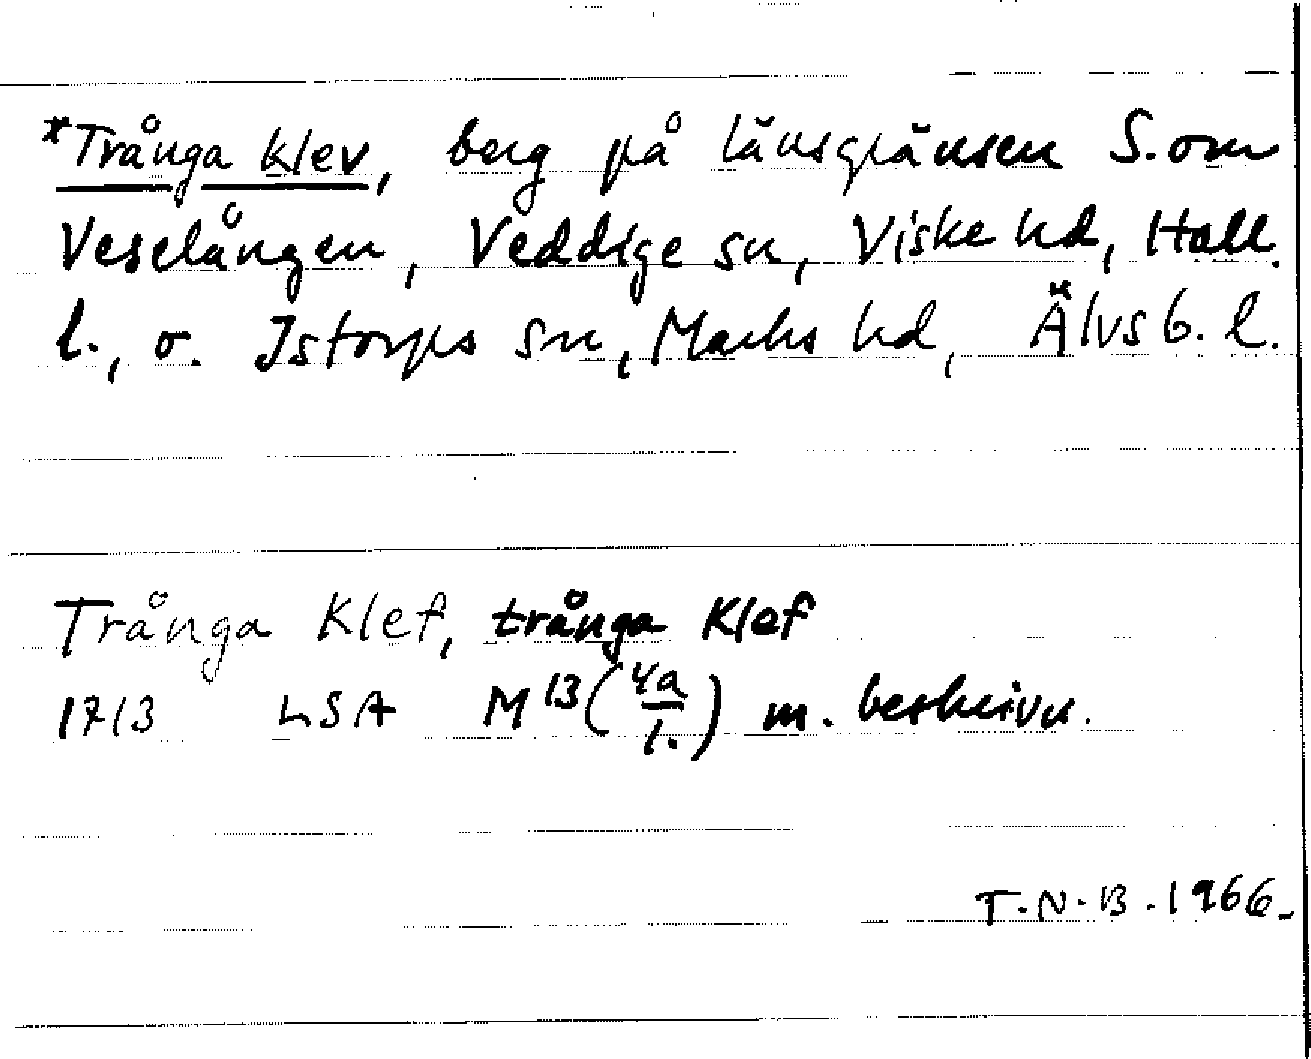 *Trånga klev, berg på länsgränsen S. om
Veselången, Veddige sn, Viske hd, Hall.
l., o. Istorps sn, Marks hd, Älvsb. l.
Trånga Klef, trånga Klef
1713 LSA M13(4a/1.) m. beskrivn.
T.N.B. 1966.